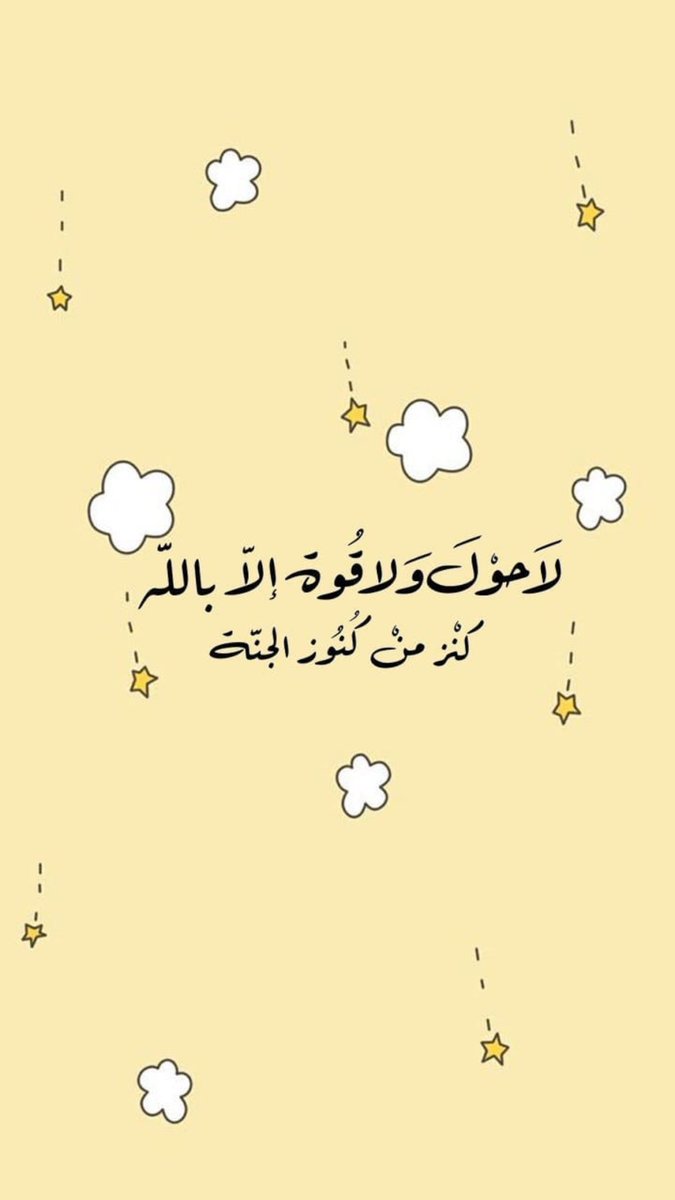 لاَحوْلَ وَلا قُوة إلاّ باللّه
كنْز منْ كُنُوز الجنّة